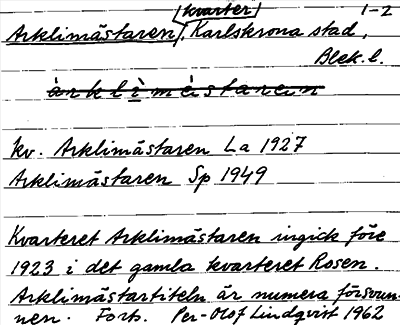 kvarter 1-2
Arklimästaren, Karlskrona stad,
Blek. l.
àrklìmèstaren
kv. Arklimästaren La 1927
Arklimästaren Sp 1949
Kvarteret Arklimästaren ingick före
1923 i det gamla kvarteret Rosen.
Arklimästartiteln är numera försvun-
nen. Forts. Per-Olof Lindqvist 1962